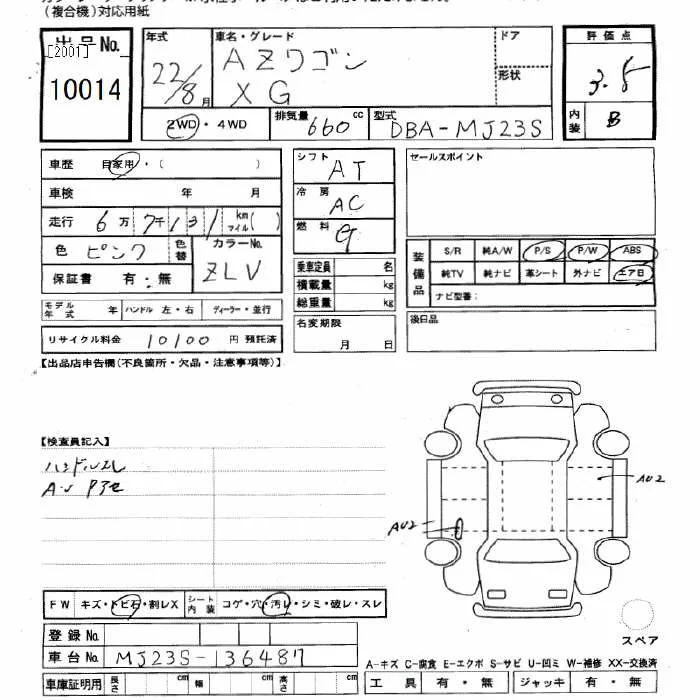 (複合機)対応用紙
出品No.
[2001]
10014
年式
22/8月
車名・グレード
AZワゴン
XG
ドア
形状
2WD・4WD
排気量 660 cc
型式 DBA-MJ23S
評価点
3.5
内装 B
車歴 自家用・( )
車検 年 月
走行 6万7千131 km マイル( )
色 ピンク 色替
カラーNo. ZLV
保証書 有・無
モデル年式 年 ハンドル 左・右 ディーラー・並行
リサイクル料金 10100 円 預託済
シフト AT
冷房 AC
燃料 G
乗車定員 名
積載量 kg
総重量 kg
名変期限
月 日
セールスポイント
装備品
S/R 純A/W P/S P/W ABS
純TV 純ナビ 革シート 外ナビ エアB
ナビ型番:
後日品
【出品店申告欄(不良箇所・欠品・注意事項等)】
【検査員記入】
ハンドルスレ
AU2
AU2
FW キズ・トビ石・割レX シート内装 コゲ・穴・汚レ・シミ・破レ・スレ
登録No.
車台No. MJ23S-136487
車庫証明用 長さ cm 幅 cm 高さ cm
スペア
A-キズ C-腐食 E-エクボ S-サビ U-凹ミ W-補修 XX-交換済
工具 有・無 ジャッキ 有・無